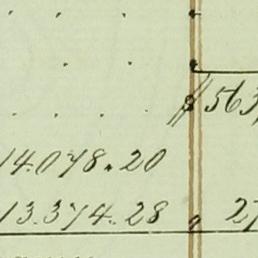 $563
14.078.20
13.374.28 " 27